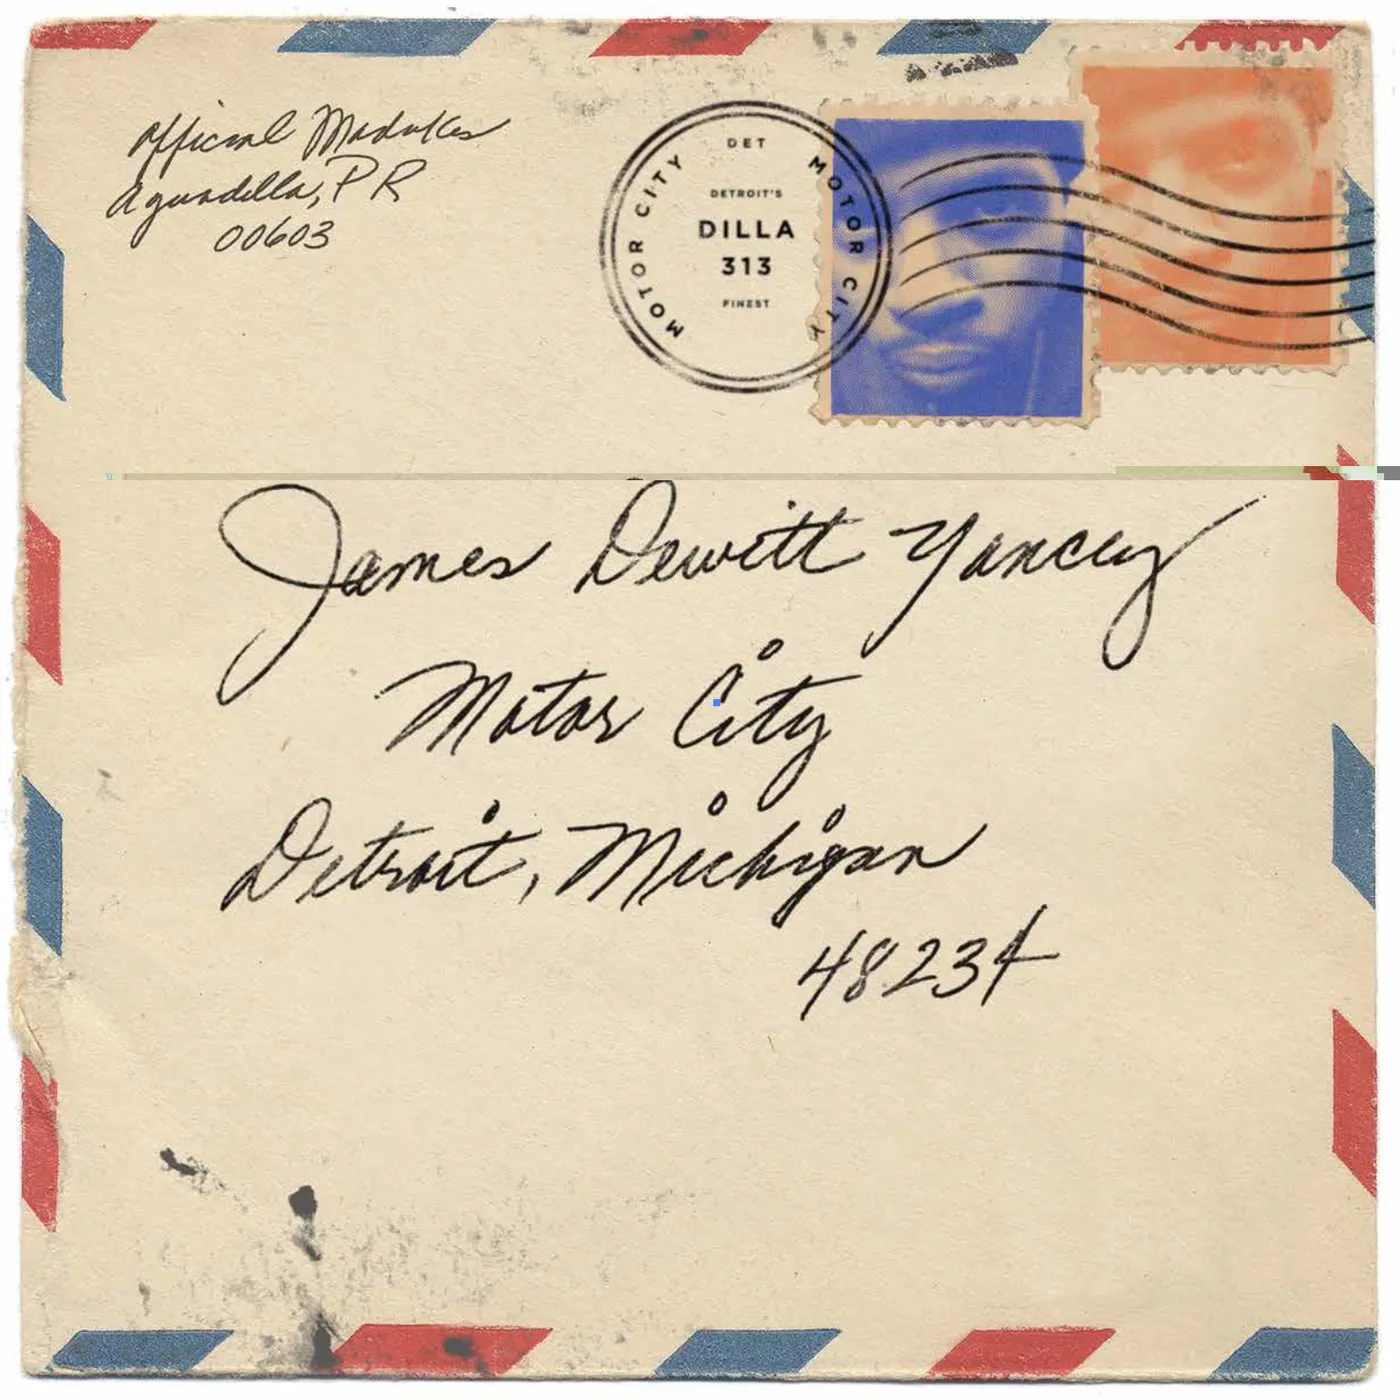 Official Madukes
Aguadilla, PR
00603
DET
MOTOR CITY
MOTOR CITY
DETROIT'S
DILLA
313
FINEST
James Dewitt Yancey
Motor City
Detroit, Michigan
48234